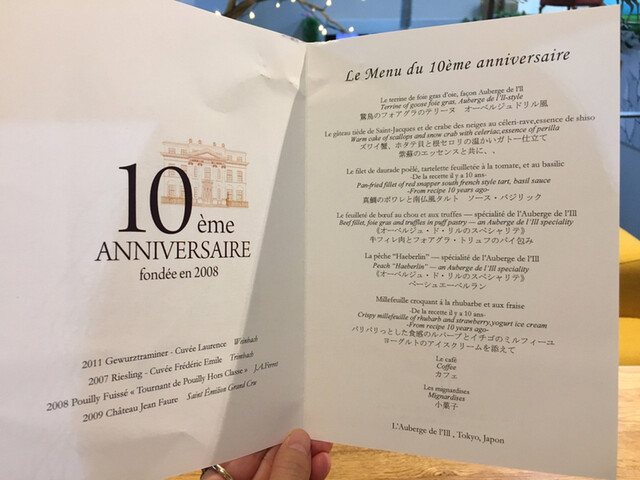 10ème
ANNIVERSAIRE
fondée en 2008
2011 Gewurztraminer - Cuvée Laurence Weinbach
2007 Riesling - Cuvée Frédéric Emile Trimbach
2008 Pouilly Fuissé « Tournant de Pouilly Hors Classe » J.A.Ferret
2009 Château Jean Faure Saint Émilion Grand Cru
Le Menu du 10ème anniversaire
Le terrine de foie gras d'oie, façon Auberge de l'Ill
Terrine of goose foie gras, Auberge de l'Ill-style
鵞鳥のフォアグラのテリーヌ オーベルジュドリル風
Le gâteau tiède de Saint-Jacques et de crabe des neiges au céleri-rave,essence de shiso
Warm cake of scallops and snow crab with celeriac,essence of perilla
ズワイ蟹、ホタテ貝と根セロリの温かいガトー仕立て
紫蘇のエッセンスと共に、.
Le filet de daurade poêlé, tartelette feuilletée à la tomate, et au basilic
-De la recette il y a 10 ans-
Pan-fried fillet of red snapper south french style tart, basil sauce
-From recipe 10 years ago-
真鯛のポワレと南仏風タルト ソース・バジリック
Le feuilleté de bœuf au chou et aux truffes — spécialité de l'Auberge de l'Ill
Beef fillet, foie gras and truffles in puff pastry — an Auberge de l'Ill speciality
《オーベルジュ・ド・リルのスペシャリテ》
牛フィレ肉とフォアグラ・トリュフのパイ包み
La pêche "Haeberlin" — spécialité de l'Auberge de l'Ill
Peach "Haeberlin" — an Auberge de l'Ill speciality
《オーベルジュ・ド・リルのスペシャリテ》
ペーシュエーベルラン
Millefeuille croquant à la rhubarbe et aux fraise
-De la recette il y a 10 ans-
Crispy millefeuille of rhubarb and strawberry,yogurt ice cream
-From recipe 10 years ago-
パリパリっとした食感のルバーブとイチゴのミルフィーユ
ヨーグルトのアイスクリームを添えて
Le café
Coffee
カフェ
Les mignardises
Mignardises
小菓子
L'Auberge de l'Ill , Tokyo, Japon